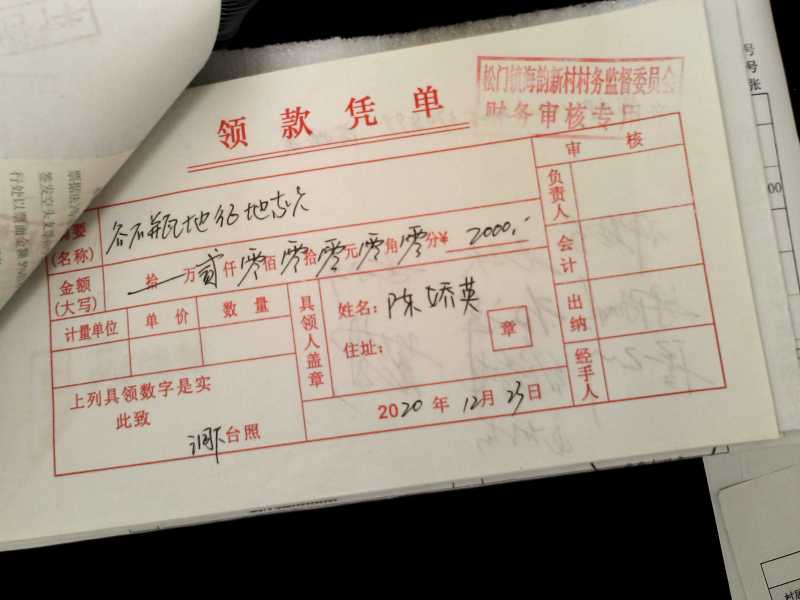 松门航海韵新村村务监督委员会
财务审核专用章
领款凭单
审核
摘要
(名称)
负责人
金额
(大写)
拾 万贰仟零佰零拾零元零角零分¥ 2000.-
会计
计量单位 单价 数量
具领人盖章
姓名: 陈娇英
住址:
章
出纳
上列具领数字是实
此致
台照
2020年12月23日
经手人